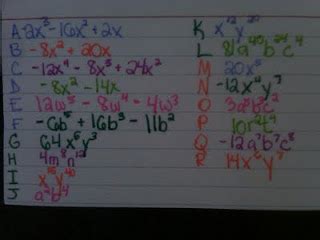 A -2x³ -16x² + 2x
B -8x² + 20x
C -12x⁴ - 8x³ + 24x²
D -8x² - 14x
E 12w⁵ - 8w⁴ - 4w³
F -6b⁵ + 16b³ - 11b²
G 64x⁶y³
H 4m⁸n¹²
I
J a²b⁴
K x¹²y²⁰
L 81a⁴⁰b²⁴c⁴
M 20x⁵
N -12x²y⁷
O
P
Q -12a⁷b⁷c⁸
R 14x⁶y⁷